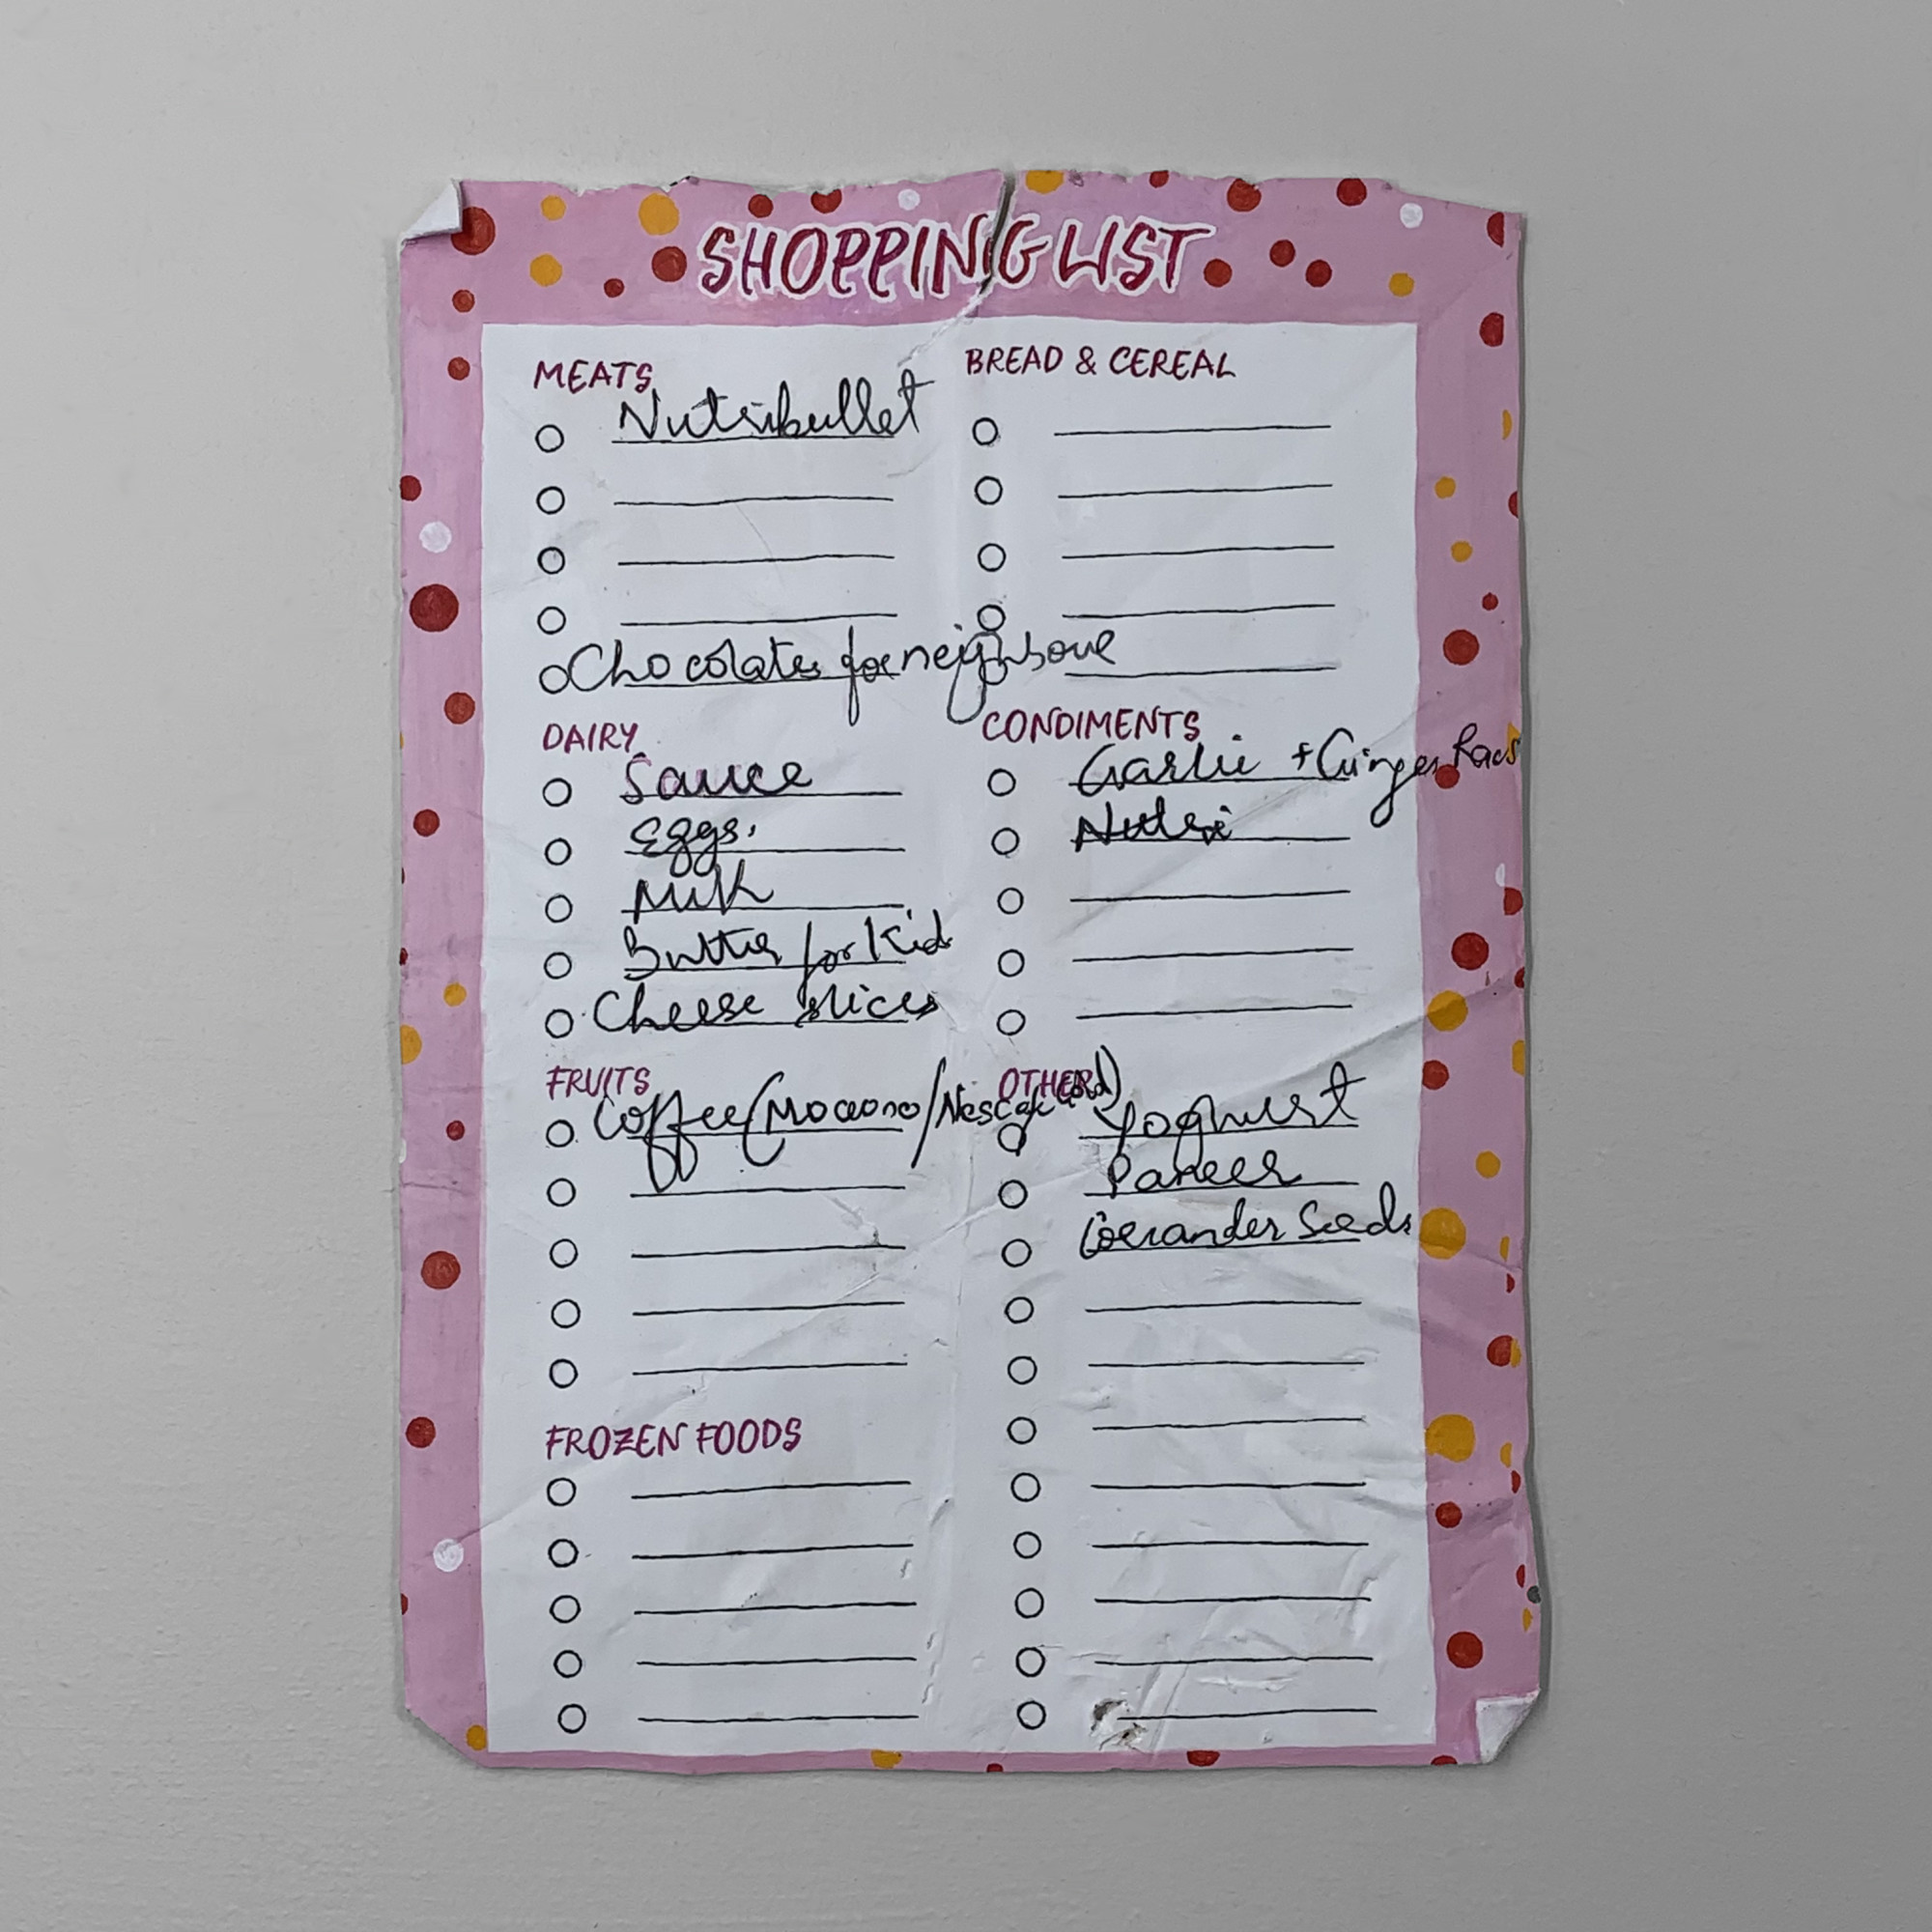 SHOPPING LIST
MEATS
Nutribullet
Chocolates for neighbour
BREAD & CEREAL
DAIRY
Sauce
Eggs.
Milk
Butter for Kid
Cheese slices
CONDIMENTS
Garlic + Ginger
Nutri
FRUITS
Coffee (Moccona/Nescafe Gold)
OTHER
Yoghurt
Paneer
Coriander Seeds
FROZEN FOODS